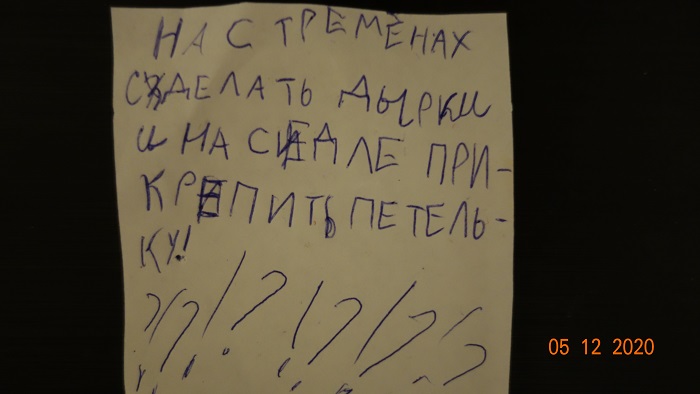 НА СТРЕМЕНАХ
СДЕЛАТЬ ДЫРКИ
И НА СЕДЛЕ ПРИ-
КРЕПИТЬ ПЕТЕЛЬ-
КУ!
?!?!?!?
05 12 2020